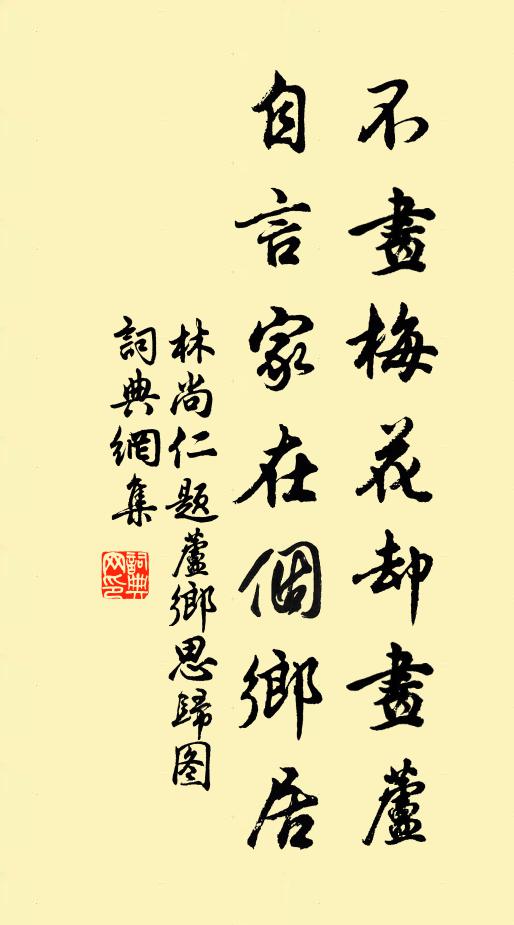 不畫梅花却畫蘆
自言家在個鄉居
林尚仁题蘆鄉思歸图
詞典網集
詞典网印